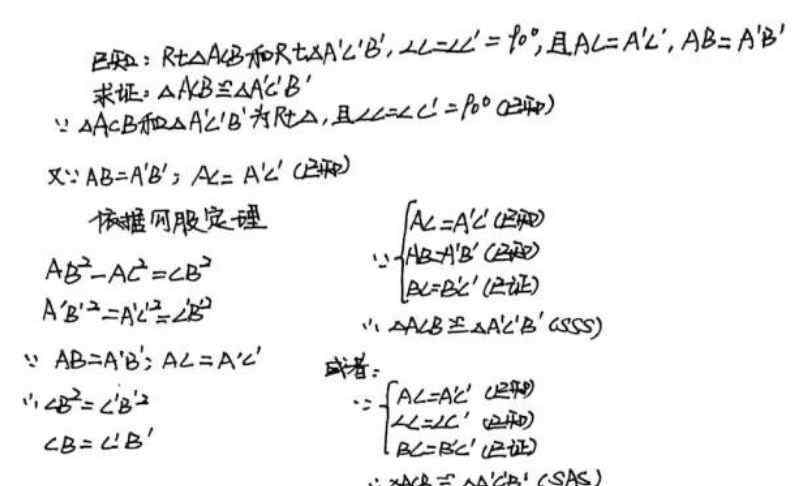 已知：Rt△ACB和Rt△A'C'B'，∠C=∠C'=90°，且AC=A'C'，AB=A'B'
求证：△ACB≌△A'C'B'
∵ △ACB和△A'C'B'为Rt△，且∠C=∠C'=90°(已知)
又∵AB=A'B'；AC=A'C'(已知)
依据勾股定理
AB²-AC²=CB²
A'B'²=A'C'²=C'B'²
∵ AB=A'B'；AC=A'C'
∴CB²=C'B'²
CB=C'B'
∵ { AC=A'C'(已知)
AB=A'B'(已知)
BC=B'C'(已证)
∴ △ACB≌△A'C'B'(SSS)
或者：
∵ { AC=A'C'(已知)
∠C=∠C'(已知)
BC=B'C'(已证)
∴ △ACB≌△A'C'B'(SAS)